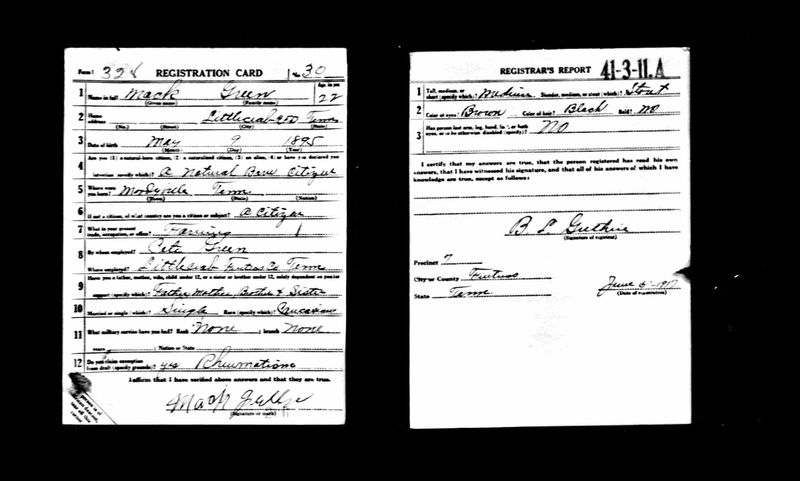 Form 1 328 REGISTRATION CARD No. 30
1 Name in full Mack Green Age in yrs. 22
(Given name) (Family name)
2 Home address Littlecrab Tenn
(No.) (Street) (City) (State)
3 Date of birth May 9 1895
(Month) (Day) (Year)
4 Are you (1) a natural-born citizen, (2) a naturalized citizen, (3) an alien, (4) or have you declared your
intention (specify which)? A Natural Born Citizen
5 Where were you born? Moodyville Tenn
(Town) (State) (Nation)
6 If not a citizen, of what country are you a citizen or subject? A Citizen
7 What is your present trade, occupation, or office? Farming
8 By whom employed? Pete Green
Where employed? Littlecrab Fentress Co Tenn
9 Have you a father, mother, wife, child under 12, or a sister or brother under 12, solely dependent on you for
support (specify which)? Father, Mother, Brother & Sister
10 Married or single (which)? Single Race (specify which)? Caucasian
11 What military service have you had? Rank None ; branch None
years ; Nation or State
12 Do you claim exemption from draft (specify grounds)? yes Rheumatism
I affirm that I have verified above answers and that they are true.
Mack
(Signature or mark)
REGISTRAR'S REPORT 41-3-11.A
1 Tall, medium, or short (specify which)? Medium Slender, medium, or stout (which)? Stout
2 Color of eyes? Brown Color of hair? Black Bald? No
3 Has person lost arm, leg, hand, foot, or both eyes, or is he otherwise disabled (specify)? No
I certify that my answers are true, that the person registered has read his own
answers, that I have witnessed his signature, and that all of his answers of which I have
knowledge are true, except as follows:
B L Guthrie
(Signature of registrar)
Precinct 7
City or County Fentress
State Tenn June 5-1917
(Date of registration)